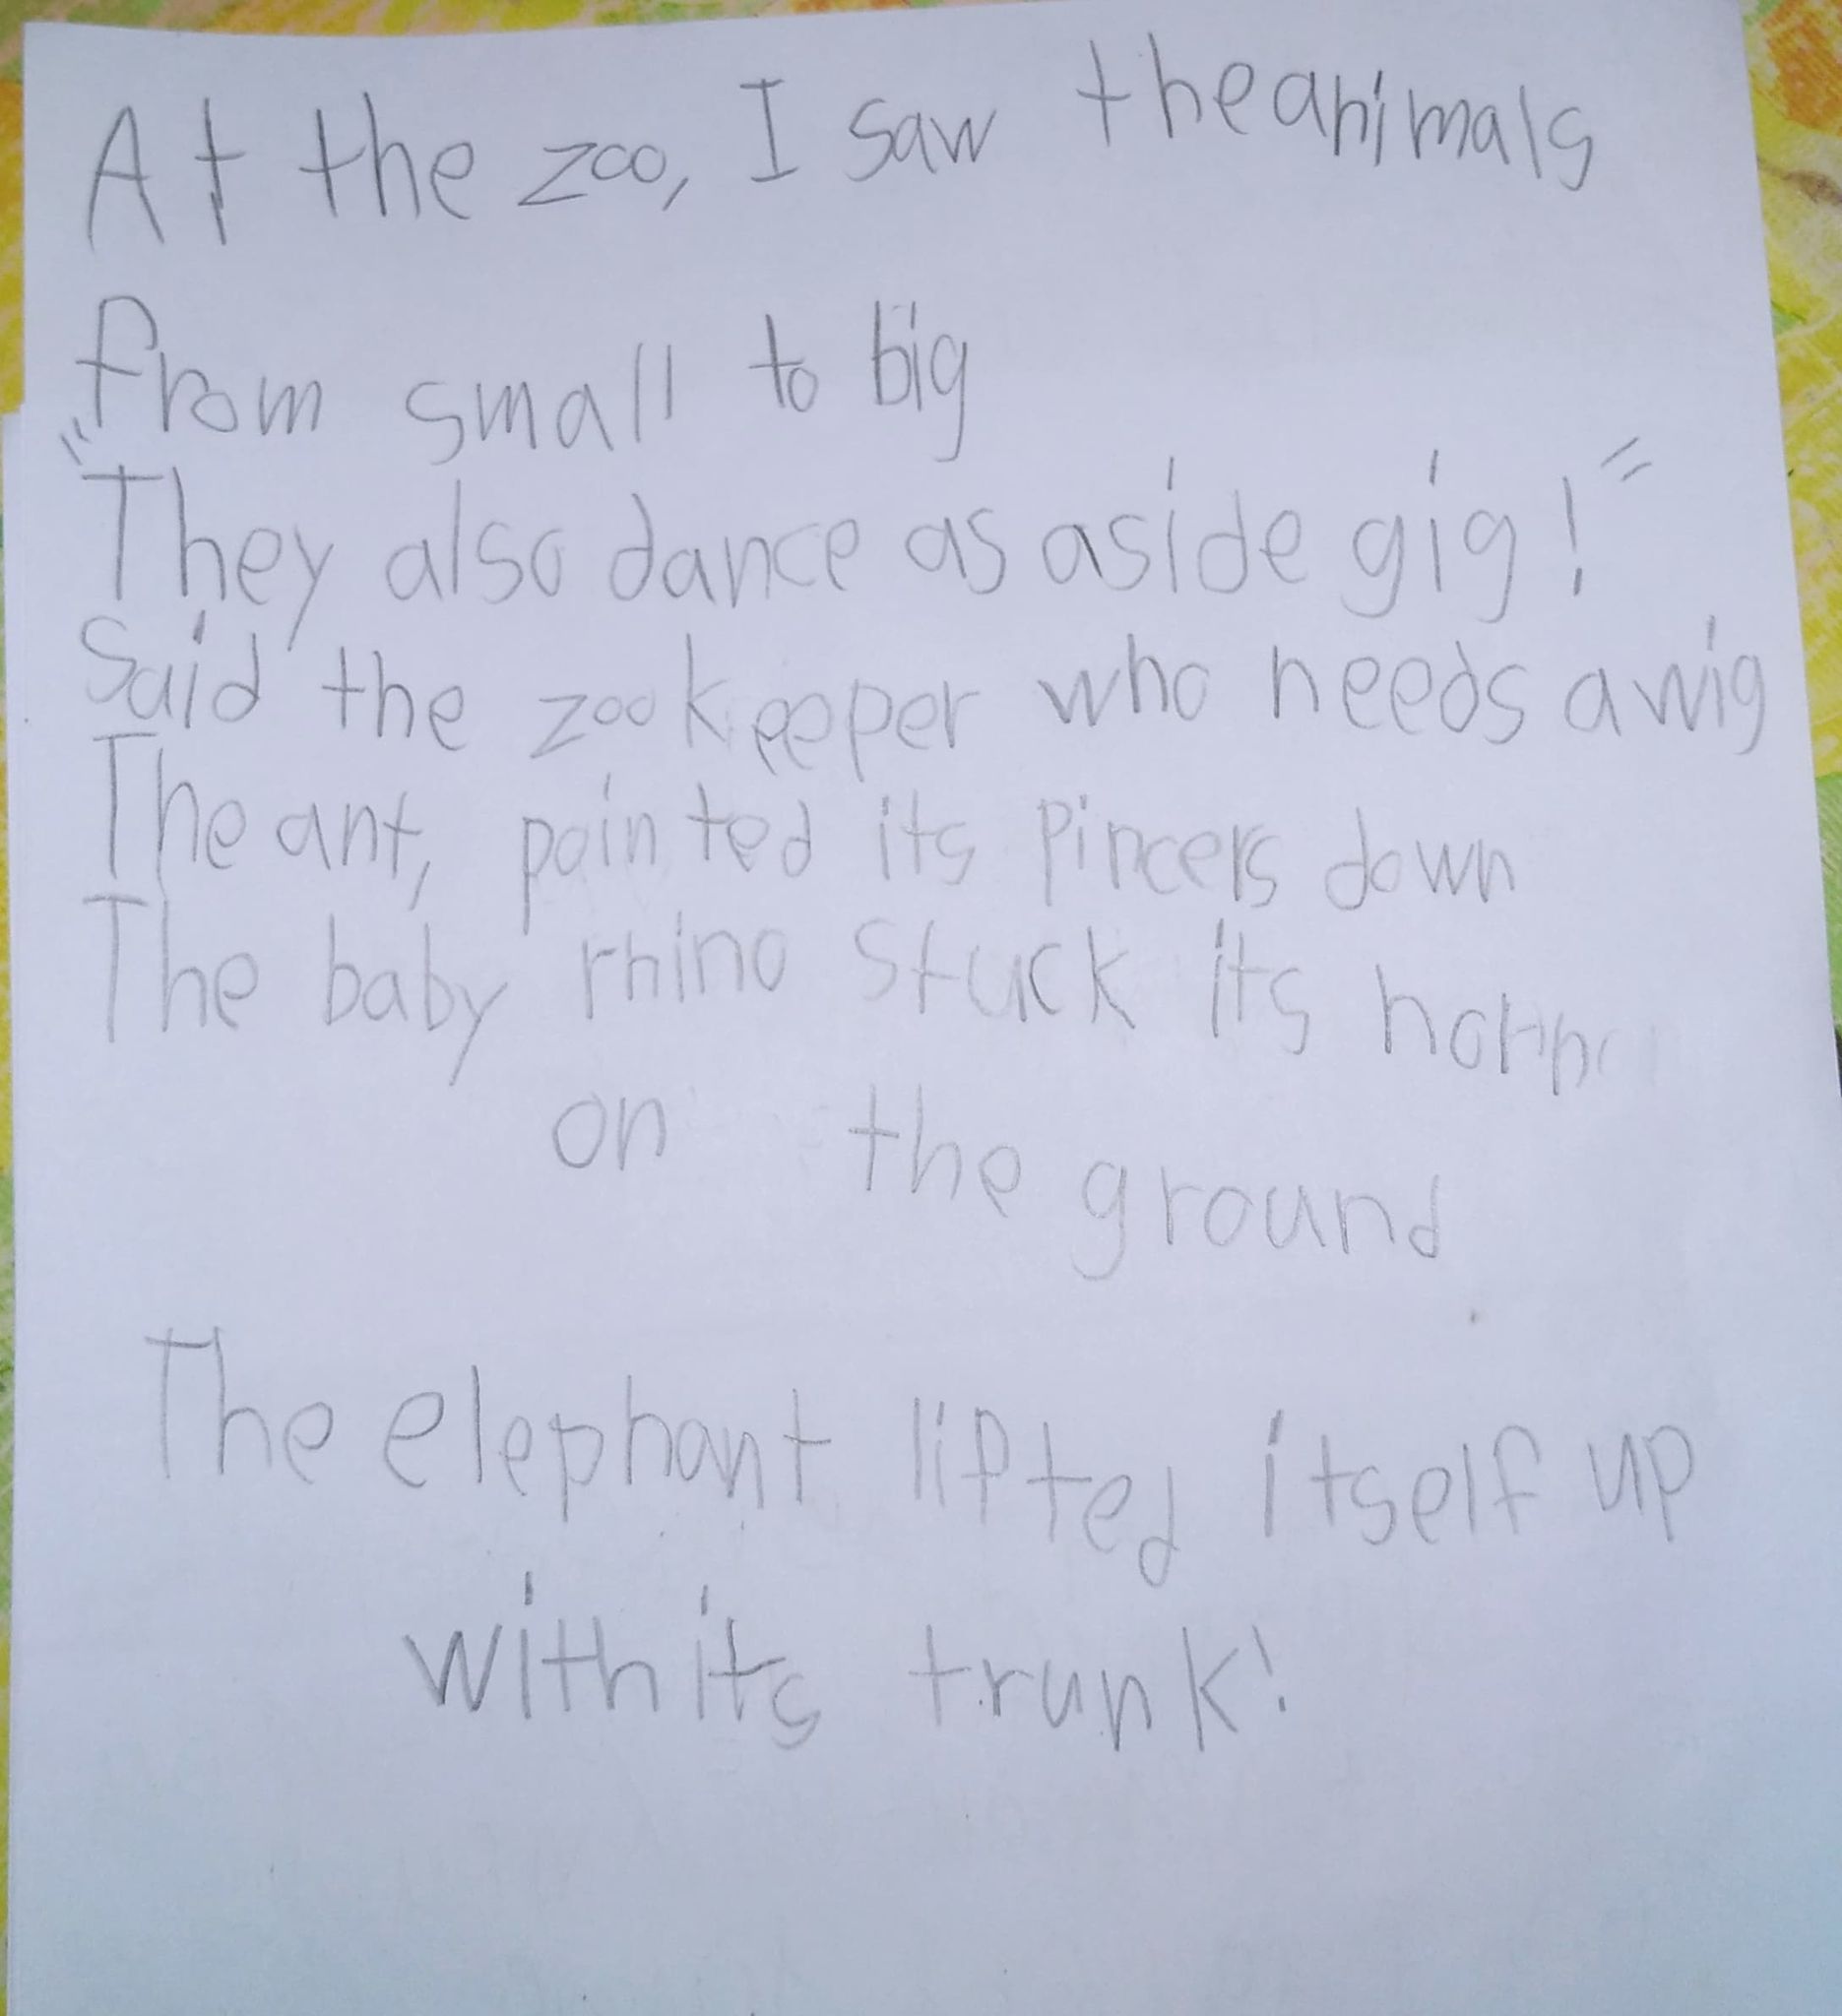 At the zoo, I saw the animals
from small to big
"They also dance as a side gig!"
Said the zookeeper who needs a wig
The ant, pointed its pincers down
The baby rhino stuck its horn
on the ground
The elephant lifted itself up
with its trunk!